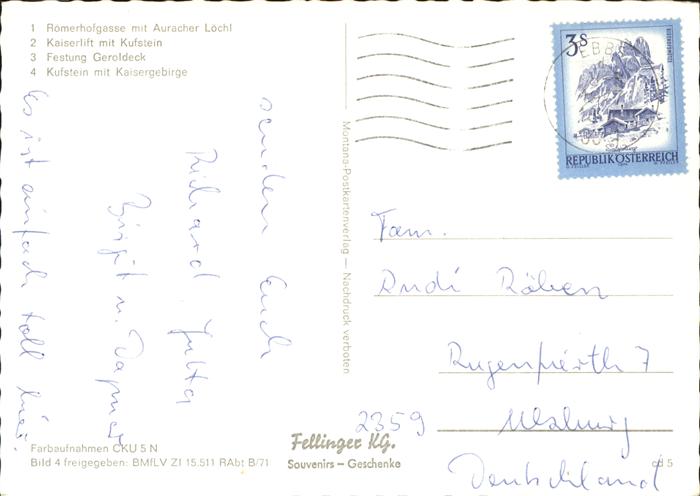 1 Römerhofgasse mit Auracher Löchl
2 Kaiserlift mit Kufstein
3 Festung Geroldeck
4 Kufstein mit Kaisergebirge
senden Euch
Richard Jutta
Birgit u. Dagmar
Es ist einfach toll hier.
Farbaufnahmen CKU 5 N
Bild 4 freigegeben: BMfLV Zl 15.511 RAbt B/71
Montana-Postkartenverlag — Nachdruck verboten
Fellinger KG.
Souvenirs – Geschenke
3S
REPUBLIK ÖSTERREICH
EBB
Fam.
Rudi Räben
7
2359
Deutschland
cd 5